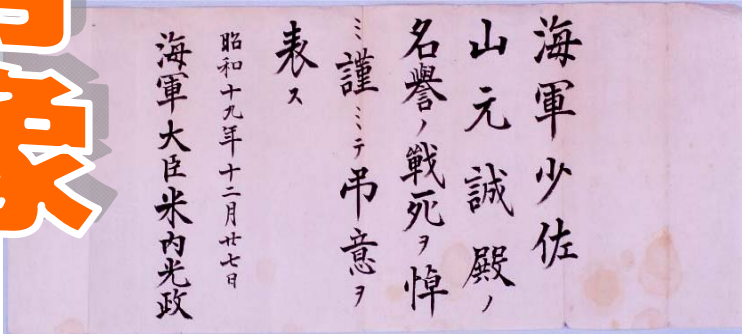 海軍少佐
山元誠殿ノ
名譽ノ戦死ヲ悼
ミ謹ミテ弔意ヲ
表ス
昭和十九年十二月廿七日
海軍大臣米内光政
象